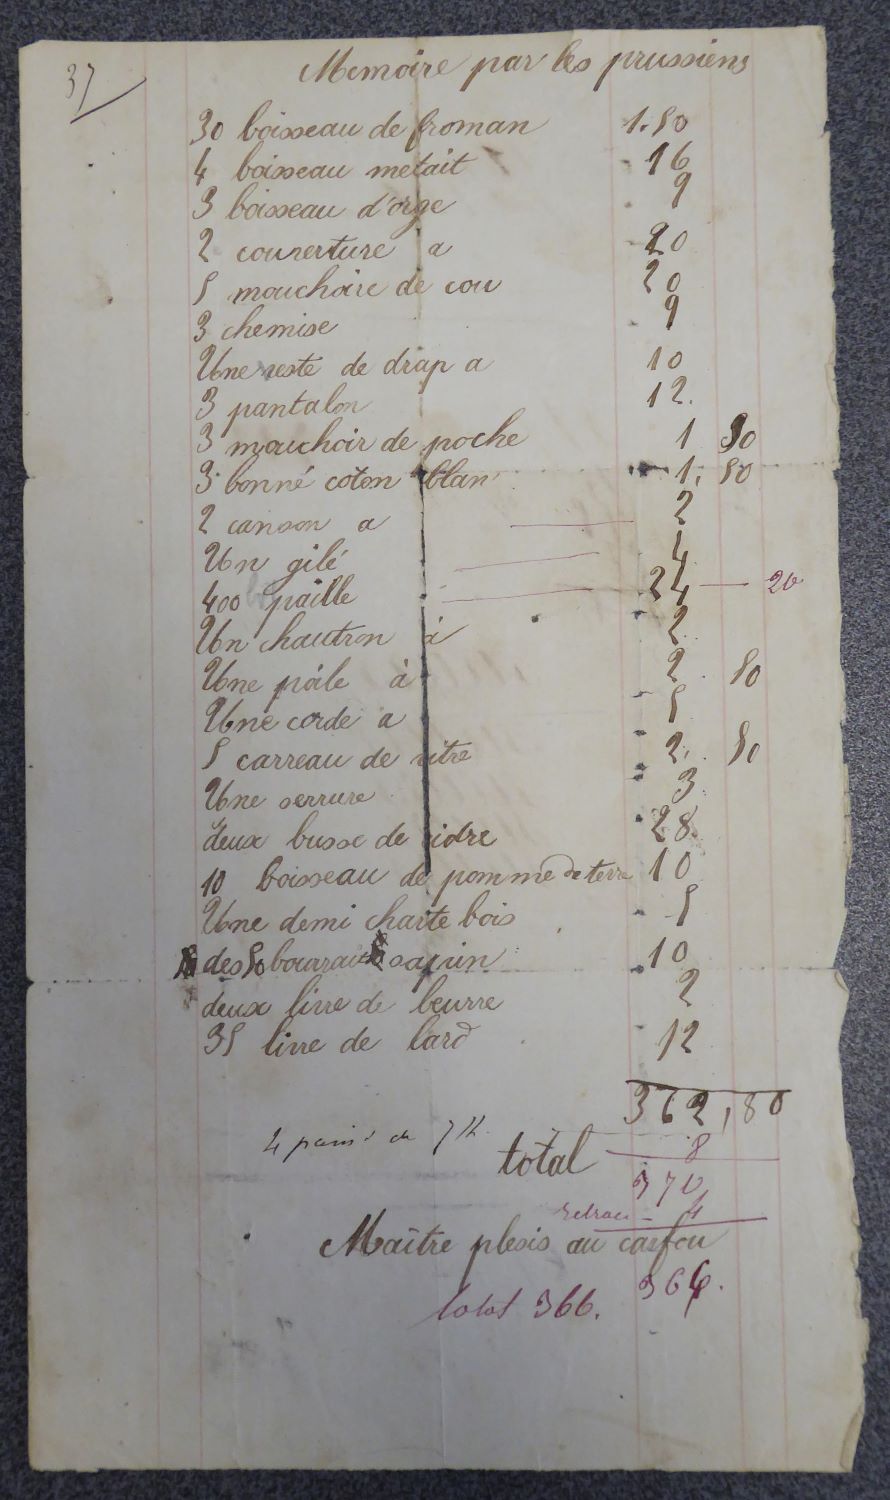 37
Memoire par les prussiens
30 boisseau de froman 1.50
4 boisseau metait 16
3 boisseau d'orge 9
2 couverture a 20
5 mouchoire de cou 20
3 chemise 9
Une reste de drap a 10
3 pantalon 12.
3 mouchoir de poche 1 50
3 bonné coton blan 1, 50
2 canson a 2
Un gilé 4
400 paille 24 — 20
Un chautron à 2
Une pále à 2 50
Une corde a 5
5 carreau de vitre 2, 50
Une serrure 3
deux busse de cidre 28
10 boisseau de pomme de terre 10
Une demi charte bois 5
des 50 sapin 10
deux livre de beurre 2
35 livre de lard 12
362,80
4 de 7 K 8
total
370
4
Maître plesis au carfou
366.
total 366.